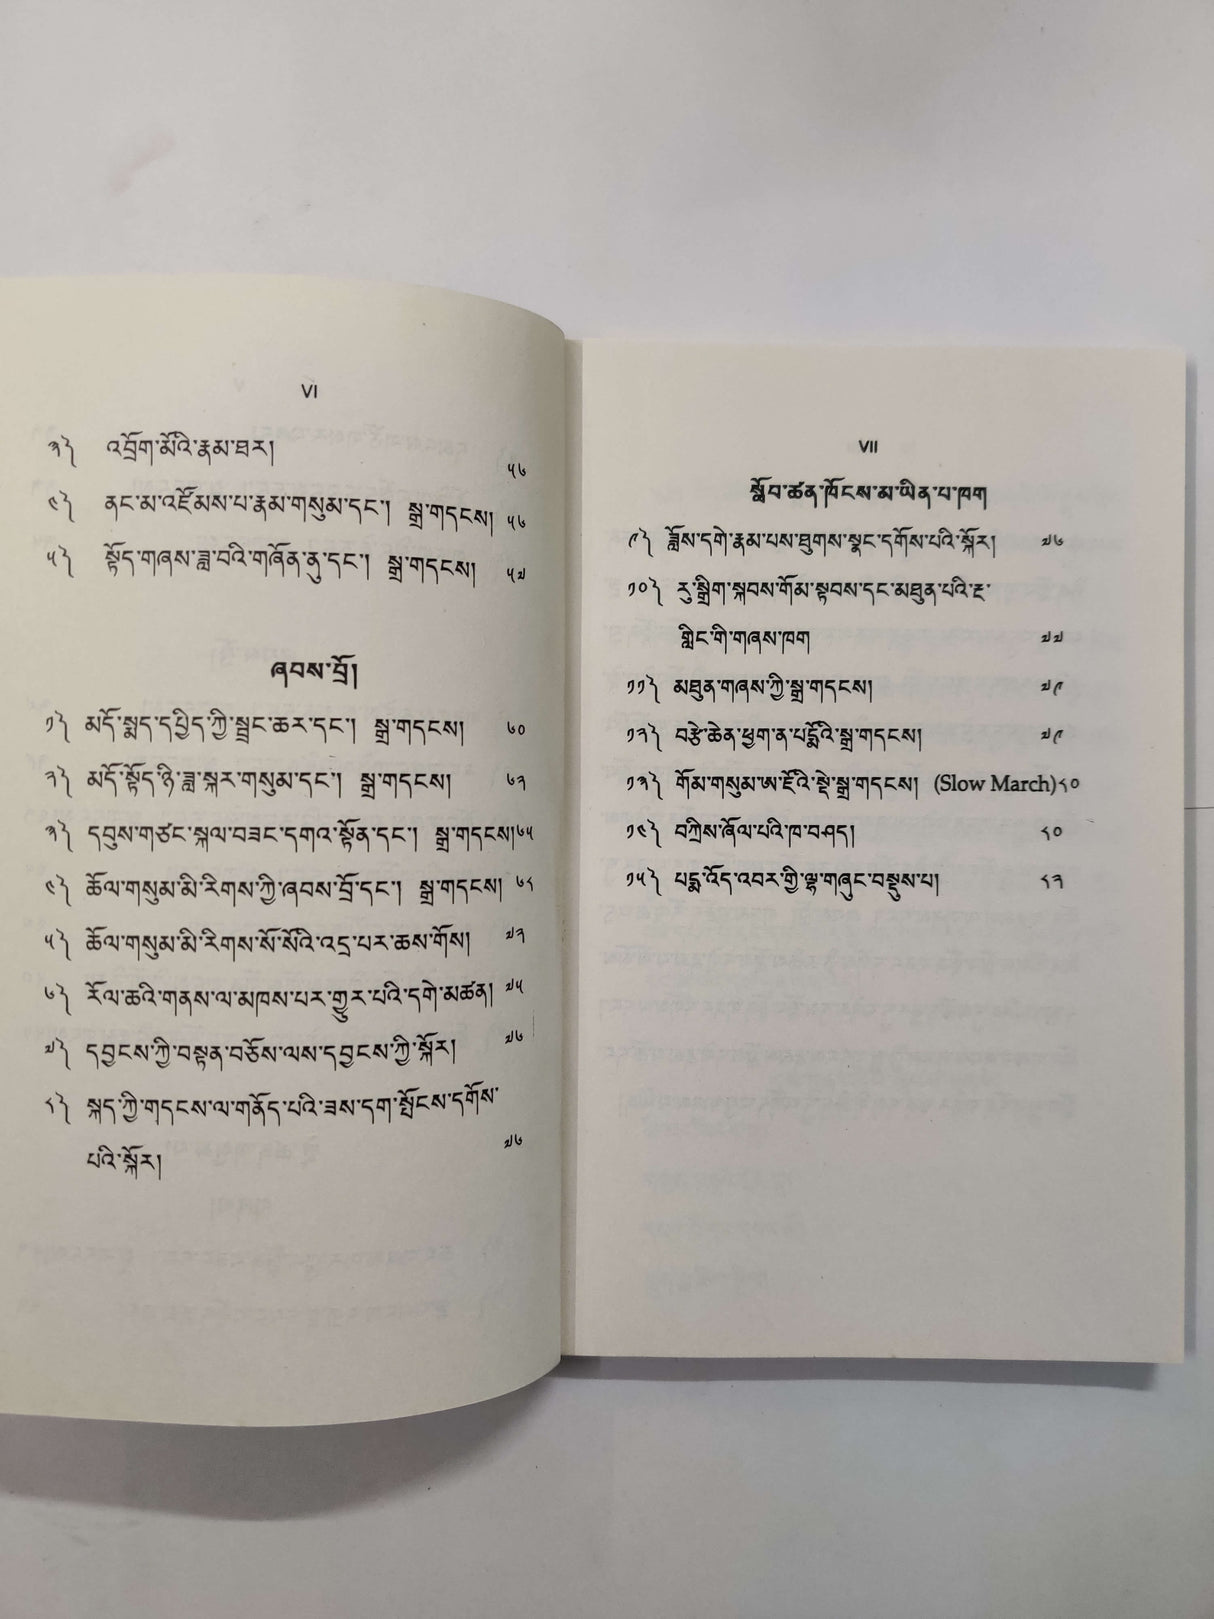 VI
༣༽ འབྲོག་མོའི་རྣམ་ཐར། ༥༦
༤༽ ནང་མ་འཛོམས་པ་རྣམ་གསུམ་དང་། སྒྲ་གདངས། ༥༦
༥༽ སྟོད་གཞས་ཟླ་བའི་གཞོན་ནུ་དང་། སྒྲ་གདངས། ༥༧
ཞབས་བྲོ།
༡༽ མདོ་སྨད་དཔྱིད་ཀྱི་སྦྲང་ཆར་དང་། སྒྲ་གདངས། ༦༠
༢༽ མདོ་སྟོད་ཉི་ཟླ་སྐར་གསུམ་དང་། སྒྲ་གདངས། ༦༢
༣༽ དབུས་གཙང་སྐལ་བཟང་དགའ་སྟོན་དང་། སྒྲ་གདངས། ༦༥
༤༽ ཆོལ་གསུམ་མི་རིགས་ཀྱི་ཞབས་བྲོ་དང་། སྒྲ་གདངས། ༦༨
༥༽ ཆོལ་གསུམ་མི་རིགས་སོ་སོའི་འདྲ་པར་ཆས་གོས། ༧༢
༦༽ རོལ་ཆའི་གནས་ལ་མཁས་པར་གྱུར་པའི་དགེ་མཚན། ༧༥
༧༽ དབྱངས་ཀྱི་བསྟན་བཅོས་ལས་དབྱངས་ཀྱི་སྐོར། ༧༦
༨༽ སྐད་ཀྱི་གདངས་ལ་གནོད་པའི་ཟས་དག་སྤོངས་དགོས་
པའི་སྐོར། ༧༦
VII
སློབ་ཚན་ཁོངས་མ་ཡིན་པ་ཁག
༩༽ ཟློས་དགེ་རྣམ་པས་ཐུགས་སྣང་དགོས་པའི་སྐོར། ༧༦
༡༠༽ རུ་སྒྲིག་སྐབས་གོམ་སྟབས་དང་མཐུན་པའི་རྔ་
གླིང་གི་གཞས་ཁག ༧༧
༡༡༽ མཐུན་གཞས་ཀྱི་སྒྲ་གདངས། ༧༩
༡༢༽ བརྩེ་ཆེན་ཕྱག་ན་པདྨོའི་སྒྲ་གདངས། ༧༩
༡༣༽ གོམ་གསུམ་ཨ་ཇོའི་སྡེ་སྒྲ་གདངས། (Slow March) ༨༠
༡༤༽ བཀྲིས་ཞོལ་པའི་ཁ་བཤད། ༨༠
༡༥༽ པདྨ་འོད་འབར་གྱི་ལྷ་གཞུང་བསྡུས་པ། ༨༢